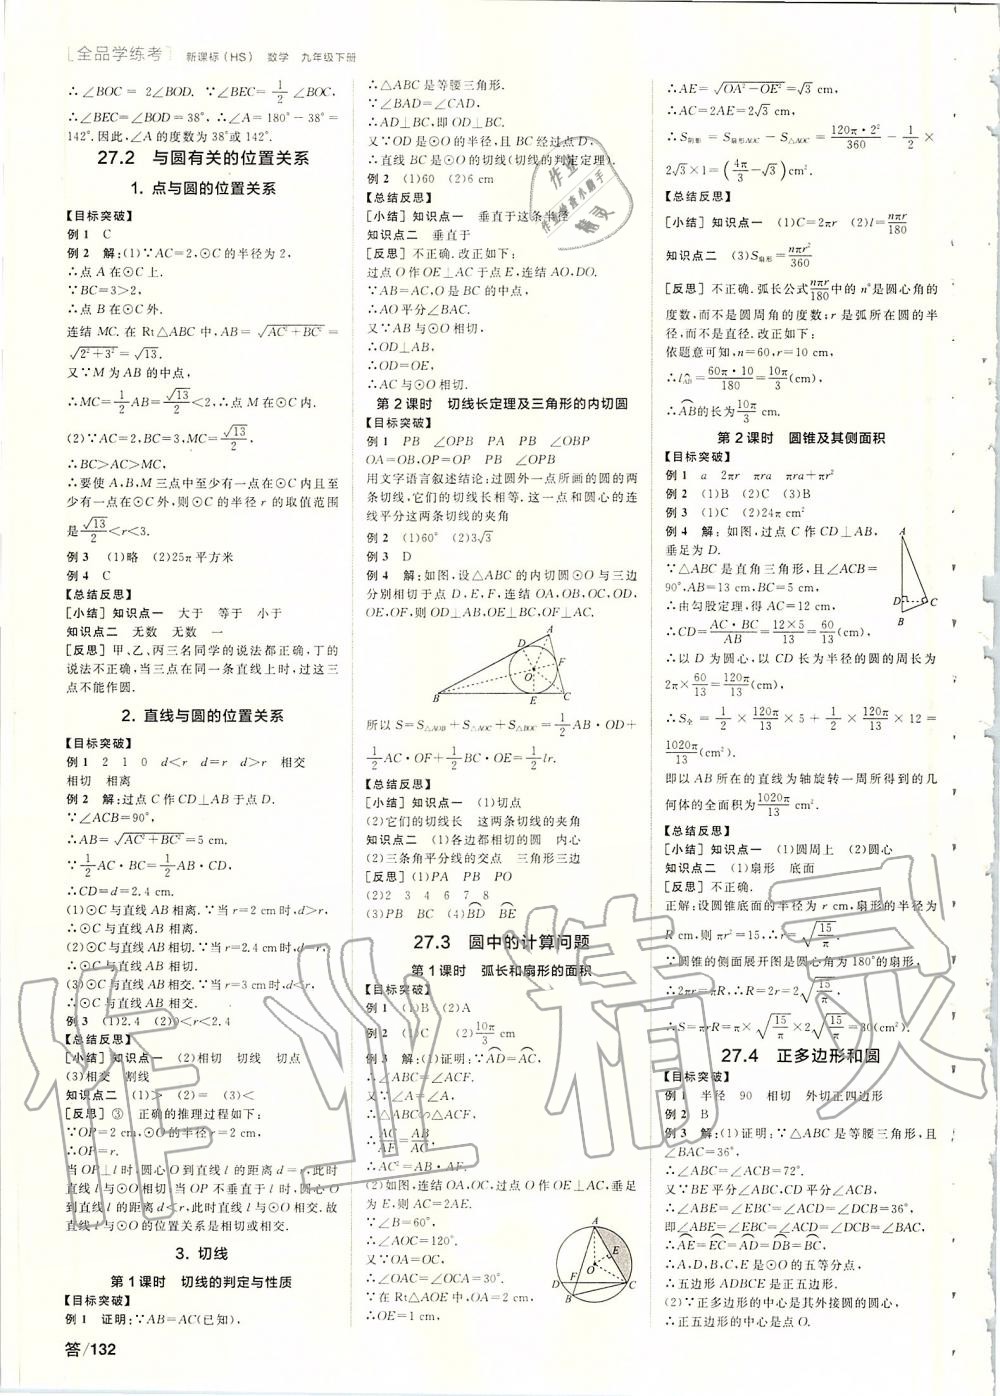 全品学练考 新课标(HS) 数学 九年级下册
∴∠BOC=2∠BOD. ∵∠BEC=1/2∠BOC,
∴∠BEC=∠BOD=38°,∴∠A=180°-38°=
142°.因此,∠A的度数为38°或142°.
27.2 与圆有关的位置关系
1. 点与圆的位置关系
【目标突破】
例1 C
例2 解:(1)∵AC=2,⊙C的半径为2,
∴点A在⊙C上.
∵BC=3>2,
∴点B在⊙C外.
连结MC.在Rt△ABC中,AB=√(AC²+BC²)=
√(2²+3²)=√13.
又∵M为AB的中点,
∴MC=1/2AB=√13/2<2,∴点M在⊙C内.
(2)∵AC=2,BC=3,MC=√13/2,
∴BC>AC>MC,
∴要使A,B,M三点中至少有一点在⊙C内且至
少有一点在⊙C外,则⊙C的半径r的取值范围
是√13/2<r<3.
例3 (1)略 (2)25π平方米
例4 C
【总结反思】
[小结] 知识点一 大于 等于 小于
知识点二 无数 无数 一
[反思] 甲、乙、丙三名同学的说法都正确,丁的
说法不正确,当三点在同一条直线上时,过这三
点不能作圆.
2. 直线与圆的位置关系
【目标突破】
例1 2 1 0 d<r d=r d>r 相交
相切 相离
例2 解:过点C作CD⊥AB于点D.
∵∠ACB=90°,
∴AB=√(AC²+BC²)=5 cm.
∵1/2AC·BC=1/2AB·CD,
∴CD=d=2.4 cm.
(1)⊙C与直线AB相离.∵当r=2 cm时,d>r,
∴⊙C与直线AB相离.
(2)⊙C与直线AB相切.∵当r=2.4 cm时,d=r,
∴⊙C与直线AB相切.
(3)⊙C与直线AB相交.∵当r=3 cm时,d<r,
∴⊙C与直线AB相交.
例3 (1)2.4 (2)0<r<2.4
【总结反思】
[小结] 知识点一 (2)相切 切线 切点
(3)相交 割线
知识点二 (1)> (2)= (3)<
[反思] ③ 正确的推理过程如下:
∵OP=2 cm,⊙O的半径r=2 cm,
∴OP=r.
当OP⊥l时,圆心O到直线l的距离d=r,此时
直线l与⊙O相切;当OP不垂直于l时,圆心O
到直线l的距离d<r,此时直线l与⊙O相交.故
直线l与⊙O的位置关系是相切或相交.
3. 切线
第1课时 切线的判定与性质
【目标突破】
例1 证明:∵AB=AC(已知),
答/132
∴△ABC是等腰三角形.
∵∠BAD=∠CAD,
∴AD⊥BC,即OD⊥BC.
又∵OD是⊙O的半径,且BC经过点D,
∴直线BC是⊙O的切线(切线的判定定理).
例2 (1)60 (2)6 cm
【总结反思】
[小结] 知识点一 垂直于这条半径
知识点二 垂直于
[反思] 不正确.改正如下:
过点O作OE⊥AC于点E,连结AO,DO.
∵AB=AC,O是BC的中点,
∴AO平分∠BAC.
又∵AB与⊙O相切,
∴OD⊥AB,
∴OD=OE,
∴AC与⊙O相切.
第2课时 切线长定理及三角形的内切圆
【目标突破】
例1 PB ∠OPB PA PB ∠OBP
OA=OB,OP=OP ∠OPB
用文字语言叙述结论:过圆外一点所画的圆的两
条切线,它们的切线长相等.这一点和圆心的连
线平分这两条切线的夹角
例2 (1)60° (2)3√3
例3 D
例4 解:如图,设△ABC的内切圆⊙O与三边
分别相切于点D,E,F,连结OA,OB,OC,OD,
OE,OF,则OD⊥AB,OE⊥BC,OF⊥AC.
A
D
F
O
B
E
C
所以S=S△AOB+S△AOC+S△BOC=1/2AB·OD+
1/2AC·OF+1/2BC·OE=1/2lr.
【总结反思】
[小结] 知识点一 (1)切点
(2)它们的切线长 这两条切线的夹角
知识点二 (1)各边都相切的圆 内心
(2)三条角平分线的交点 三角形三边
[反思] (1)PA PB PO
(2)2 3 4 6 7 8
(3)PB BC (4)BD BE
27.3 圆中的计算问题
第1课时 弧长和扇形的面积
【目标突破】
例1 (1)B (2)A
例2 (1)C (2)10π/3 cm
例3 解:(1)证明:∵AD=AC,
∴∠ABC=∠ACF.
又∵∠A=∠A,
∴△ABC∽△ACF,
∴AC/AF=AB/AC,
∴AC²=AB·AF.
(2)如图,连结OA,OC,过点O作OE⊥AC,垂足
为E,则AC=2AE.
∵∠B=60°,
∴∠AOC=120°.
又∵OA=OC,
∴∠OAC=∠OCA=30°.
∵在Rt△AOE中,OA=2 cm,
∴OE=1 cm,
A
E
O
D
F
C
B
∴AE=√(OA²-OE²)=√3 cm,
∴AC=2AE=2√3 cm,
∴S阴影=S扇形AOC-S△AOC=120π·2²/360-1/2×
2√3×1=(4π/3-√3)cm².
【总结反思】
[小结] 知识点一 (1)C=2πr (2)l=nπr/180
知识点二 (3)S扇形=nπr²/360
[反思] 不正确.弧长公式nπr/180中的n°是圆心角的
度数,而不是圆周角的度数;r是弧所在圆的半
径,而不是直径.改正如下:
依题意可知,n=60,r=10 cm,
∴lAB=60π·10/180=10π/3(cm),
∴AB的长为10π/3 cm.
第2课时 圆锥及其侧面积
【目标突破】
例1 a 2πr πra πra+πr²
例2 (1)B (2)C (3)B
例3 (1)C (2)24π cm²
例4 解:如图,过点C作CD⊥AB,
垂足为D.
∵△ABC是直角三角形,且∠ACB=
90°,AB=13 cm,BC=5 cm,
∴由勾股定理,得AC=12 cm,
∴CD=AC·BC/AB=12×5/13=60/13(cm),
A
D
C
B
∴以D为圆心,以CD长为半径的圆的周长为
2π×60/13=120π/13(cm),
∴S全=1/2×120π/13×5+1/2×120π/13×12=
1020π/13(cm²).
即以AB所在的直线为轴旋转一周所得到的几
何体的全面积为1020π/13 cm².
【总结反思】
[小结] 知识点一 (1)圆周上 (2)圆心
知识点二 (1)扇形 底面
[反思] 不正确.
正解:设圆锥底面的半径为r cm,扇形的半径为
R cm,则πr²=15,∴r=√(15/π).
∵圆锥的侧面展开图是圆心角为180°的扇形,
∴2πr=πR,∴R=2r=2√(15/π),
∴S=πrR=π×√(15/π)×2√(15/π)=30(cm²).
27.4 正多边形和圆
【目标突破】
例1 半径 90 相切 外切正四边形
例2 B
例3 解:(1)证明:∵△ABC是等腰三角形,且
∠BAC=36°,
∴∠ABC=∠ACB=72°.
又∵BE平分∠ABC,CD平分∠ACB,
∴∠ABE=∠EBC=∠ACD=∠DCB=36°,
即∠ABE=∠EBC=∠ACD=∠DCB=∠BAC,
∴AE=EC=AD=DB=BC,
∴A,D,B,C,E是⊙O的五等分点,
∴五边形ADBCE是正五边形.
(2)∵正多边形的中心是其外接圆的圆心,
∴正五边形的中心是点O.
作业精灵